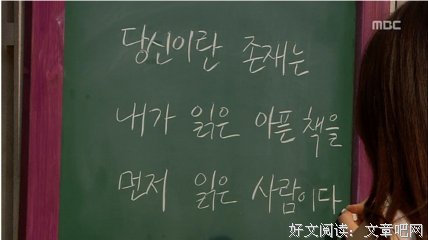 MBC
당신이란 존재는
내가 읽은 아픈 책을
먼저 읽은 사람이다
好文阅读：文章吧网